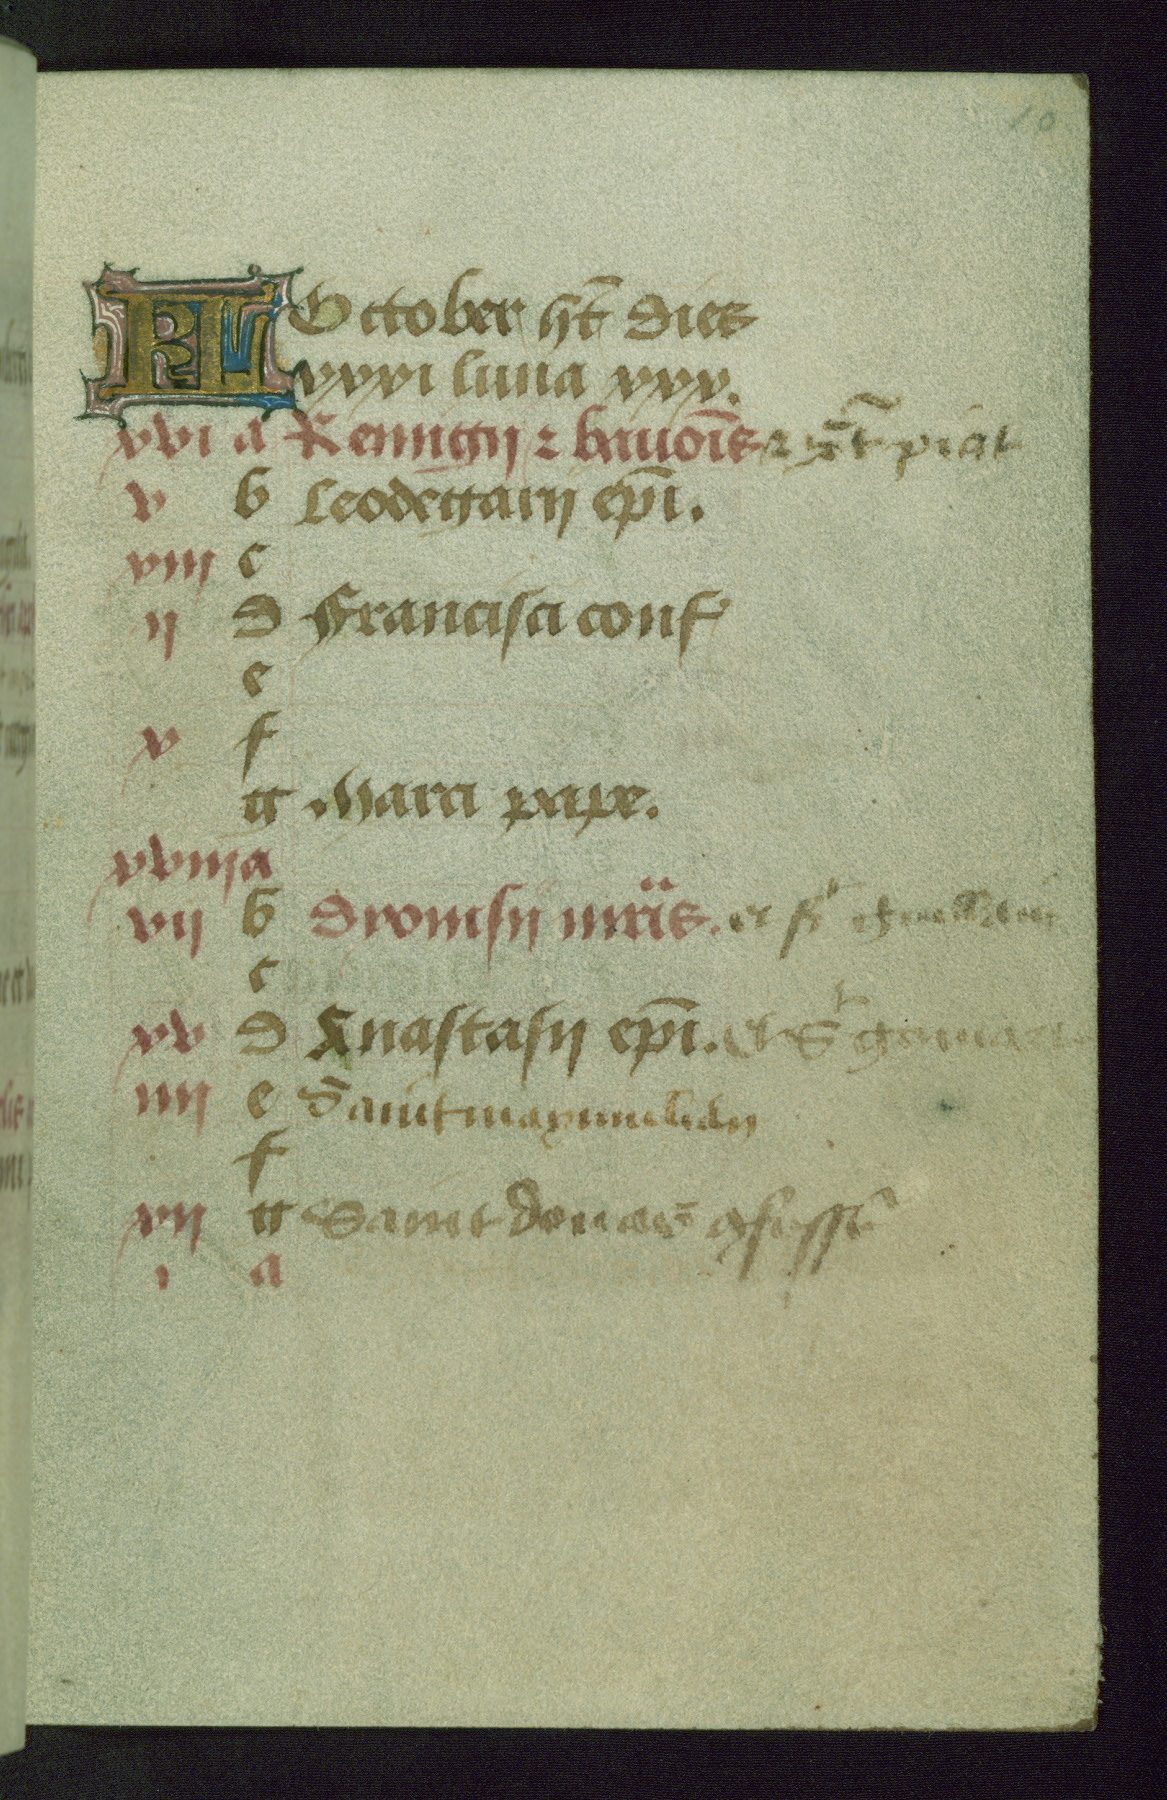 10
KL October hēt dies
xxxi luna xxx.
xvi a Remigij ⁊ bauoīs ⁊ piat
v b Leodegarij ep̄i.
xiii c
ii d Francisci conf
e
x f
g Marci pape.
xviii a
vii b Dionisij mr̄is. et
c
xv d Anastasij ep̄i. et
iiii e Saint maximilidij
f
xii g Saint donas
i a